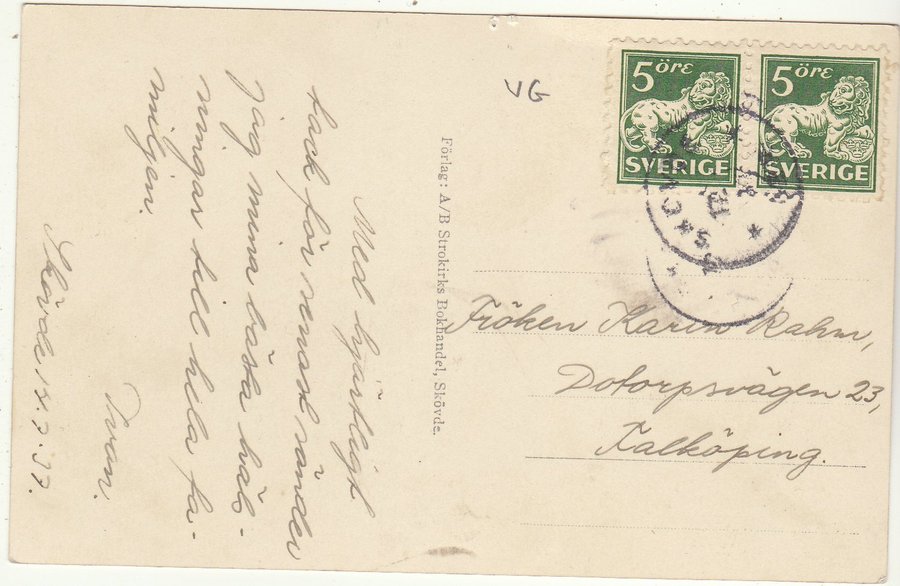 Med hjärtligt
tack för senast sänder
jag mina bästa häls-
ningar till hela fa-
miljen.
Ivan.
Skövde 13.3.37.
Förlag: A/B Strokirks Bokhandel, Skövde.
VG
5 öre
SVERIGE
5 öre
SVERIGE
Fröken Karin Rahm,
Dotorpsvägen 23,
Falköping.